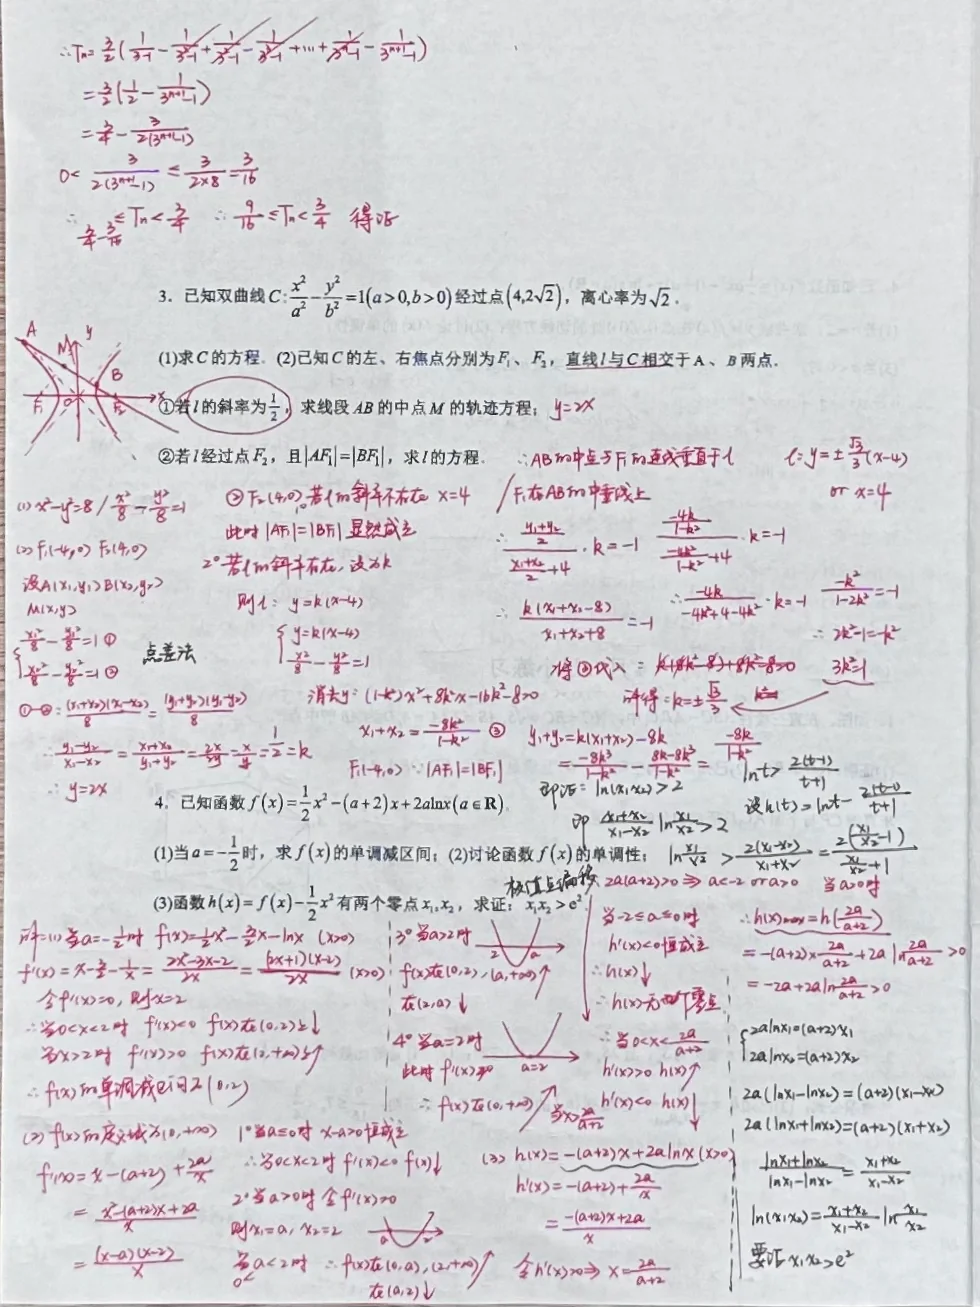 ∴Tn=3/2(1/(3-1)-1/(3²-1)+1/(3²-1)-1/(3³-1)+…+1/(3ⁿ-1)-1/(3ⁿ⁺¹-1))
=3/2(1/2-1/(3ⁿ⁺¹-1))
=3/4-3/(2(3ⁿ⁺¹-1))
0<3/(2(3ⁿ⁺¹-1))≤3/(2×8)=3/16
∴3/4-3/16≤Tn<3/4 ∴9/16≤Tn<3/4 得证
3．已知双曲线C:x²/a²-y²/b²=1(a>0,b>0)经过点(4,2√2)，离心率为√2．
(1)求C的方程．(2)已知C的左、右焦点分别为F₁、F₂，直线l与C相交于A、B两点．
①若l的斜率为1/2，求线段AB的中点M的轨迹方程；y=2x
②若l经过点F₂，且|AF₁|=|BF₁|，求l的方程．
A
M
y
B
x
F₁
O
F₂
(1) x²-y²=8 / x²/8-y²/8=1
(2) F₁(-4,0) F₂(4,0)
设A(x₁,y₁) B(x₂,y₂)
M(x,y)
x₁²/8-y₁²/8=1 ①
x₂²/8-y₂²/8=1 ②
点差法
①-②:(x₁+x₂)(x₁-x₂)/8=(y₁+y₂)(y₁-y₂)/8
∴(y₁-y₂)/(x₁-x₂)=(x₁+x₂)/(y₁+y₂)=2x/2y=x/y=1/2=k
∴y=2x
② F₂(4,0) 若l的斜率不存在 x=4
此时|AF₁|=|BF₁|显然成立
2°若l的斜率存在，设为k
则l：y=k(x-4)
y=k(x-4)
x²/8-y²/8=1
消去y:(1-k²)x²+8k²x-16k²-8=0
x₁+x₂=-8k²/(1-k²) ③
F₁(-4,0) ∵|AF₁|=|BF₁|
∴AB的中点与F₁的连线垂直于l
F₁在AB的中垂线上
∴((y₁+y₂)/2)/((x₁+x₂)/2+4)·k=-1
∴k(x₁+x₂-8)/(x₁+x₂+8)=-1
将③代入：
y₁+y₂=k(x₁+x₂)-8k
=-8k³/(1-k²)-(8k-8k³)/(1-k²)=-8k/(1-k²)
(-4k/(1-k²))/(-4k²/(1-k²)+4)·k=-1
∴-4k/(-4k²+4-4k²)·k=-1
-k²/(1-2k²)=-1
∴2k²-1=-k²
3k²=1
解得:k=±√3/3
l:y=±√3/3(x-4)
or x=4
4．已知函数f(x)=1/2x²-(a+2)x+2alnx(a∈R)．
(1)当a=-1/2时，求f(x)的单调减区间；(2)讨论函数f(x)的单调性；
(3)函数h(x)=f(x)-1/2x²有两个零点x₁,x₂，求证：x₁x₂>e²．
极值点偏移
即证：ln(x₁x₂)>2
即(x₁+x₂)/(x₁-x₂)ln(x₁/x₂)>2
ln(x₁/x₂)>2(x₁-x₂)/(x₁+x₂)=2(x₁/x₂-1)/(x₁/x₂+1)
lnt>2(t-1)/(t+1)
设h(t)=lnt-2(t-1)/(t+1)
解:(1)当a=-1/2时 f(x)=1/2x²-3/2x-lnx (x>0)
f'(x)=x-3/2-1/x=(2x²-3x-2)/2x=(2x+1)(x-2)/2x (x>0)
令f'(x)=0，则x=2
∴当0<x<2时 f'(x)<0 f(x)在(0,2)上↓
当x>2时 f'(x)>0 f(x)在(2,+∞)↗
∴f(x)的单调减区间为(0,2)
(2) f(x)的定义域为(0,+∞)
f'(x)=x-(a+2)+2a/x
=(x²-(a+2)x+2a)/x
=(x-a)(x-2)/x
1°当a≤0时 x-a>0恒成立
∴当0<x<2时 f'(x)<0 f(x)↓
2°当a>0时 令f'(x)=0
则x₁=a，x₂=2
a 2
当0<a<2时 ∴f(x)在(0,a),(2,+∞)↗
在(a,2)↓
3°当a>2时
2 a
f(x)在(0,2),(a,+∞)↗
在(2,a)↓
4°当a=2时
a=2
此时f'(x)≥0
∴f(x)在(0,+∞)↗
(3) h(x)=-(a+2)x+2alnx (x>0)
h'(x)=-(a+2)+2a/x
=(-(a+2)x+2a)/x
令h'(x)=0⇒x=2a/(a+2)
2a(a+2)>0⇒a<-2 or a>0 当a>0时
当-2≤a≤0时
h'(x)<0恒成立
∴h(x)↓
∴h(x)无两个零点
∴当0<x<2a/(a+2)
h'(x)>0 h(x)↗
当x>2a/(a+2) h'(x)<0 h(x)↓
∴h(x)max=h(2a/(a+2))
=-(a+2)×2a/(a+2)+2aln(2a/(a+2))>0
=-2a+2aln(2a/(a+2))>0
2alnx₁=(a+2)x₁
2alnx₂=(a+2)x₂
2a(lnx₁-lnx₂)=(a+2)(x₁-x₂)
2a(lnx₁+lnx₂)=(a+2)(x₁+x₂)
(lnx₁+lnx₂)/(lnx₁-lnx₂)=(x₁+x₂)/(x₁-x₂)
ln(x₁x₂)=(x₁+x₂)/(x₁-x₂)ln(x₁/x₂)
要证x₁x₂>e²